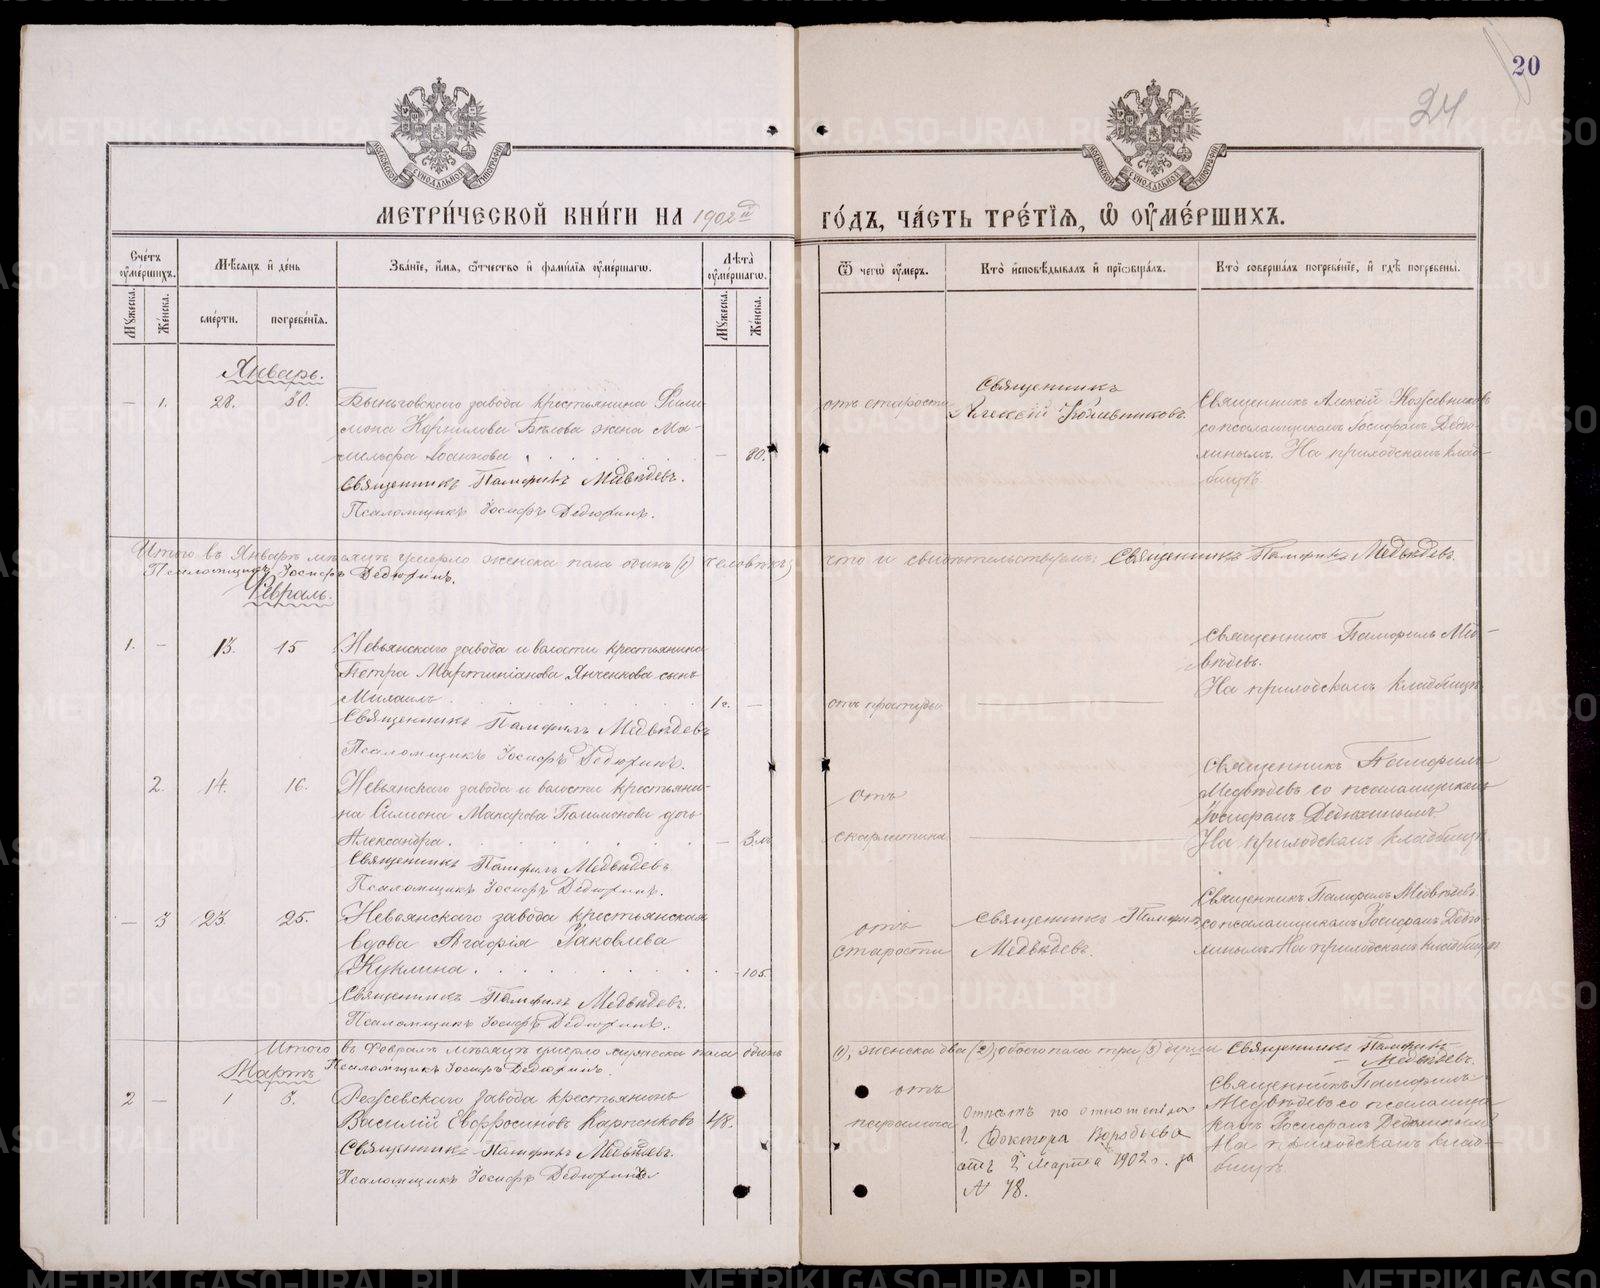 20
24
МЕТРИ́ЧЕСКОЙ КНИ́ГИ НА 1902й
ГО́ДЪ, ЧА́СТЬ ТРЕ́ТІѦ, Ѡ҆ ОУ҆МЕ́РШИХЪ.
Сче́тъ оу҆ме́ршихъ.
Мꙋ́жеска.
Же́нска.
Мѣ́сѧцъ и҆ де́нь
сме́рти.
погребе́нїѧ.
Зва́нїе, и҆́мѧ, ѻ҆́тчество и҆ фамі́лїѧ оу҆ме́ршагѡ.
Лѣ́та оу҆ме́ршагѡ.
Мꙋ́жеска.
Же́нска.
Ѿ чегѡ̀ оу҆́меръ.
Кто̀ и҆сповѣ́дывалъ и҆ прїѡбща́лъ.
Кто̀ соверша́лъ погребе́нїе, и҆ гдѣ̀ погребены̀.
Январь.
— 1. 28. 30. Быньговскаго завода крестьянина Фили-
мона Корнилова Бѣлова жена Ма-
Іоаннова — 80.
Священникъ Памфилъ Медвѣдевъ.
Псаломщикъ Іосифъ Дедюхинъ.
отъ старости
Священникъ
Алексій Кожевниковъ.
Священникъ Алексій Кожевниковъ
со псаломщикомъ Іосифомъ Дедю-
хинымъ. На приходскомъ клад-
бищѣ.
Итого въ Январѣ мѣсяцѣ умерло женска пола одинъ (1) человѣкъ,
что и свидѣтельствуемъ: Священникъ Памфилъ Медвѣдевъ.
Псаломщикъ Іосифъ Дедюхинъ.
Февраль.
1. — 13. 15 Невьянскаго завода и волости крестьянина
Петра Мартиніанова Янченкова сынъ
Михаилъ 1 г. —
Священникъ Памфилъ Медвѣдевъ
Псаломщикъ Іосифъ Дедюхинъ.
отъ простуды
Священникъ Памфилъ Мед-
вѣдевъ.
На приходскомъ кладбищѣ
2. 14. 16. Невьянскаго завода и волости крестьяни-
на Симеона Макарова дочь
Александра — 3 м.
Священникъ Памфилъ Медвѣдевъ
Псаломщикъ Іосифъ Дедюхинъ.
отъ
скарлатина
Священникъ Памфилъ
Медвѣдевъ со псаломщикомъ
Іосифомъ Дедюхинымъ.
На приходскомъ кладбищѣ.
— 3 23 25. Невьянскаго завода крестьянская
вдова Агафія Іаковлева
Куклина 105.
Священникъ Памфилъ Медвѣдевъ.
Псаломщикъ Іосифъ Дедюхинъ.
отъ
старости
Священникъ Памфилъ
Медвѣдевъ.
Священникъ Памфилъ Медвѣдевъ
со псаломщикомъ Іосифомъ Дедю-
хинымъ. На приходскомъ кладбищѣ
Итого въ Февралѣ мѣсяцѣ умерло мужеска пола одинъ
(1), женска два (2), обоего пола три (3) души Священникъ Памфилъ
Медвѣдевъ.
Псаломщикъ Іосифъ Дедюхинъ.
Мартъ
2 — 1 3. Режевскаго завода крестьянинъ
Василій Евфросиновъ Карпенковъ 48.
Священникъ Памфилъ Медвѣдевъ.
Псаломщикъ Іосифъ Дедюхинъ
отъ
паралича
Отпѣтъ по отношенію
г. Доктора Воробьева
отъ 2 марта 1902 г. за
№ 78.
Священникъ Памфилъ
Медвѣдевъ со псаломщи-
комъ Іосифомъ Дедюхинымъ
На приходскомъ клад-
бищѣ
METRIKI.GASO-URAL.RU